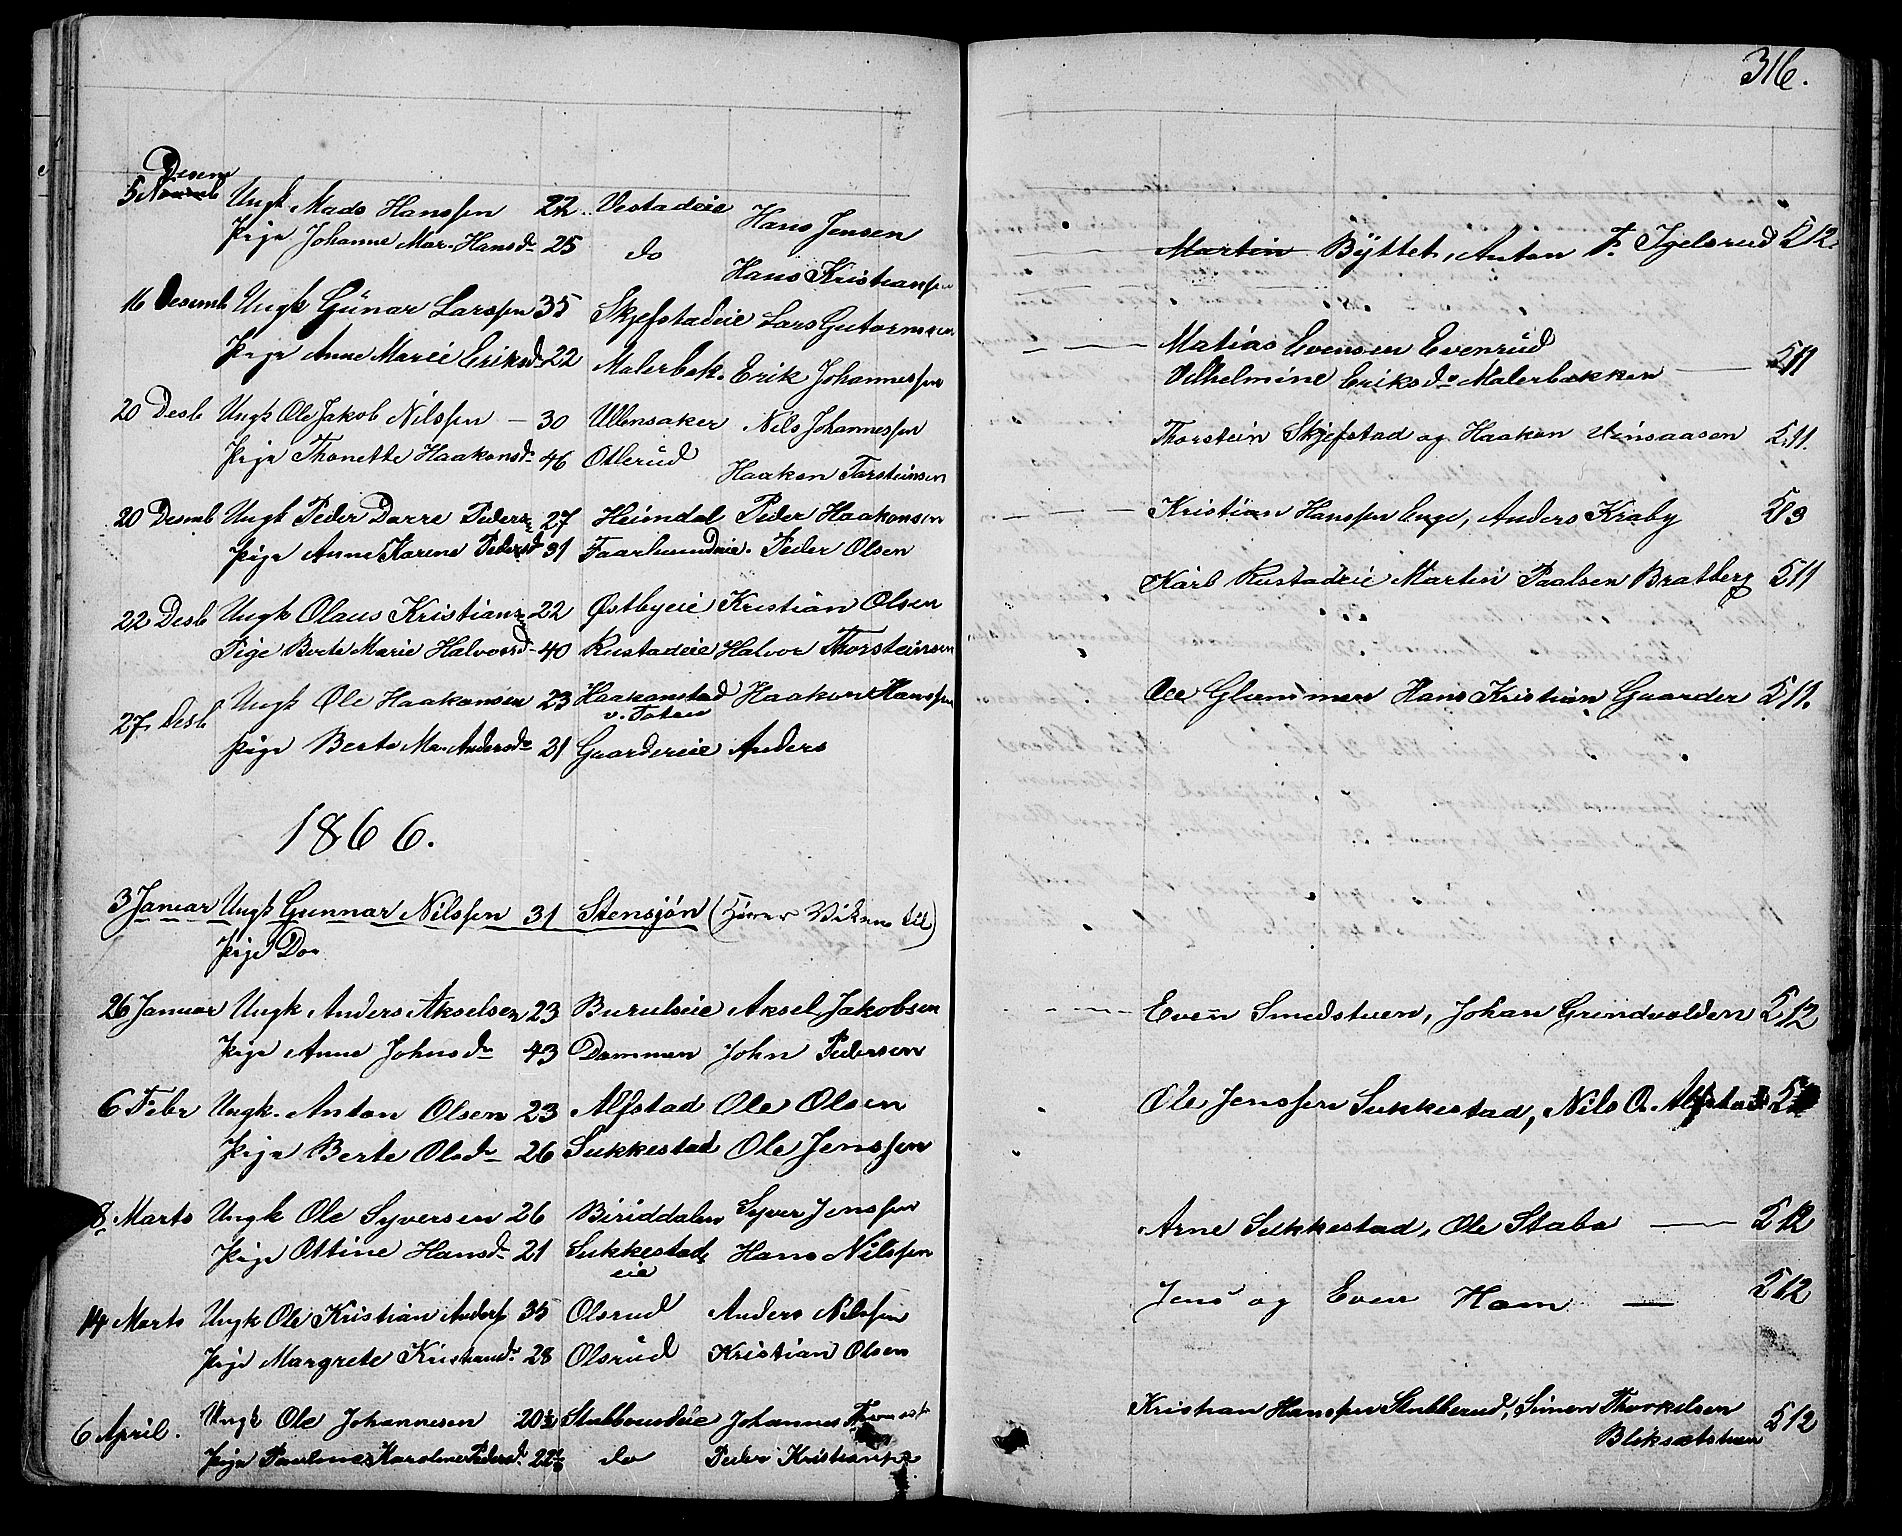 316.
Desem
5 Novemb Ungk. Mads Hanssen 22 Vestadeie Hans Jensen
Pige Johanne Mar. Hansd. 25 do Hans Kristiansen
Martin Byttet, Anton P. Igelsrud 512.
16 Desemb Ungk Günar Larssen 35 Skjefstadeie Lars Gutormsen
Pige Anne Marie Eriksd. 22 Malerbak. Erik Johannessen
Matias Evensen Evenrud
Vilhelmine Eriksd. Malerbakken — 511
20 Desb Ungk Ole Jakob Nilssen — 30 Ullensaker Nils Johannessen
Pige Thonette Haakonsd. 46 Otterud Haakon Torsteinsen
Thorstein Skjefstad og Haakon 511.
20 Desemb Ungk Peder Dorre Peders. 27 Heimdal Peder Haakonsen
Pige Anne Karene Pedersd. 31 Peder Olsen
Kristian Hanssen Enge, Anders Kraby 513
22 Desb Ungk Olaus Kristians. 22 Østbyeie Kristian Olsen
Pige Berte Marie Halvorsd. 40 Rustadeie Halvor Thorsteinsen
Karl Rustadeie Martin Paalsen Bratberg 511
27 Desb Ungk Ole Haakonsen 23 Haakonstad Haakon Hanssen
v. Toten
Pige Berte Ma. Andersd. 31 Gaardereie Anders
Ole Glemmen Hans Kristian Gaarder 511.
1866.
3 Januar Ungk Gunnar Nilssen 31 Stensjön ( til)
Pige Dor
26 Januar Ungk Anders Akselsen 23 Burulseie Aksel Jakobsen
Pige Anne Johnsd. 43 Dammen John Pedersen
Even Smedstuen, Johan Grindvolden 512
6 Febr Ungk. Anton Olsen 23 Alfstad Ole Olsen
Pige Berte Olsd. 26 Sukkestad Ole Jenssen
Ole Jenssen Sukkestad, Nils O. Alfstad
8 Marts Ungk Ole Syversen 26 Biriddalen Syver Jenssen
Pige Ottine Hansd. 21 Sukkestad Hans Nilssen
eie
Arne Sukkestad, Ole Stabo — 512
14 Marts Ungk Ole Kristian Anders 35 Olsrud Anders Nilssen
Pige Margrete Kristiansd. 28 Olsrud Kristian Olsen
Jens og Even Hom — 512
6 April. Ungk Ole Johannesen 20½ Stubberudeie Johannes
Pige Pauline Karoline Pedersd. do Peder Kristiansen
Kristian Hanssen Stubberud, Simon Thorkelsen
Bliksetstuen 512